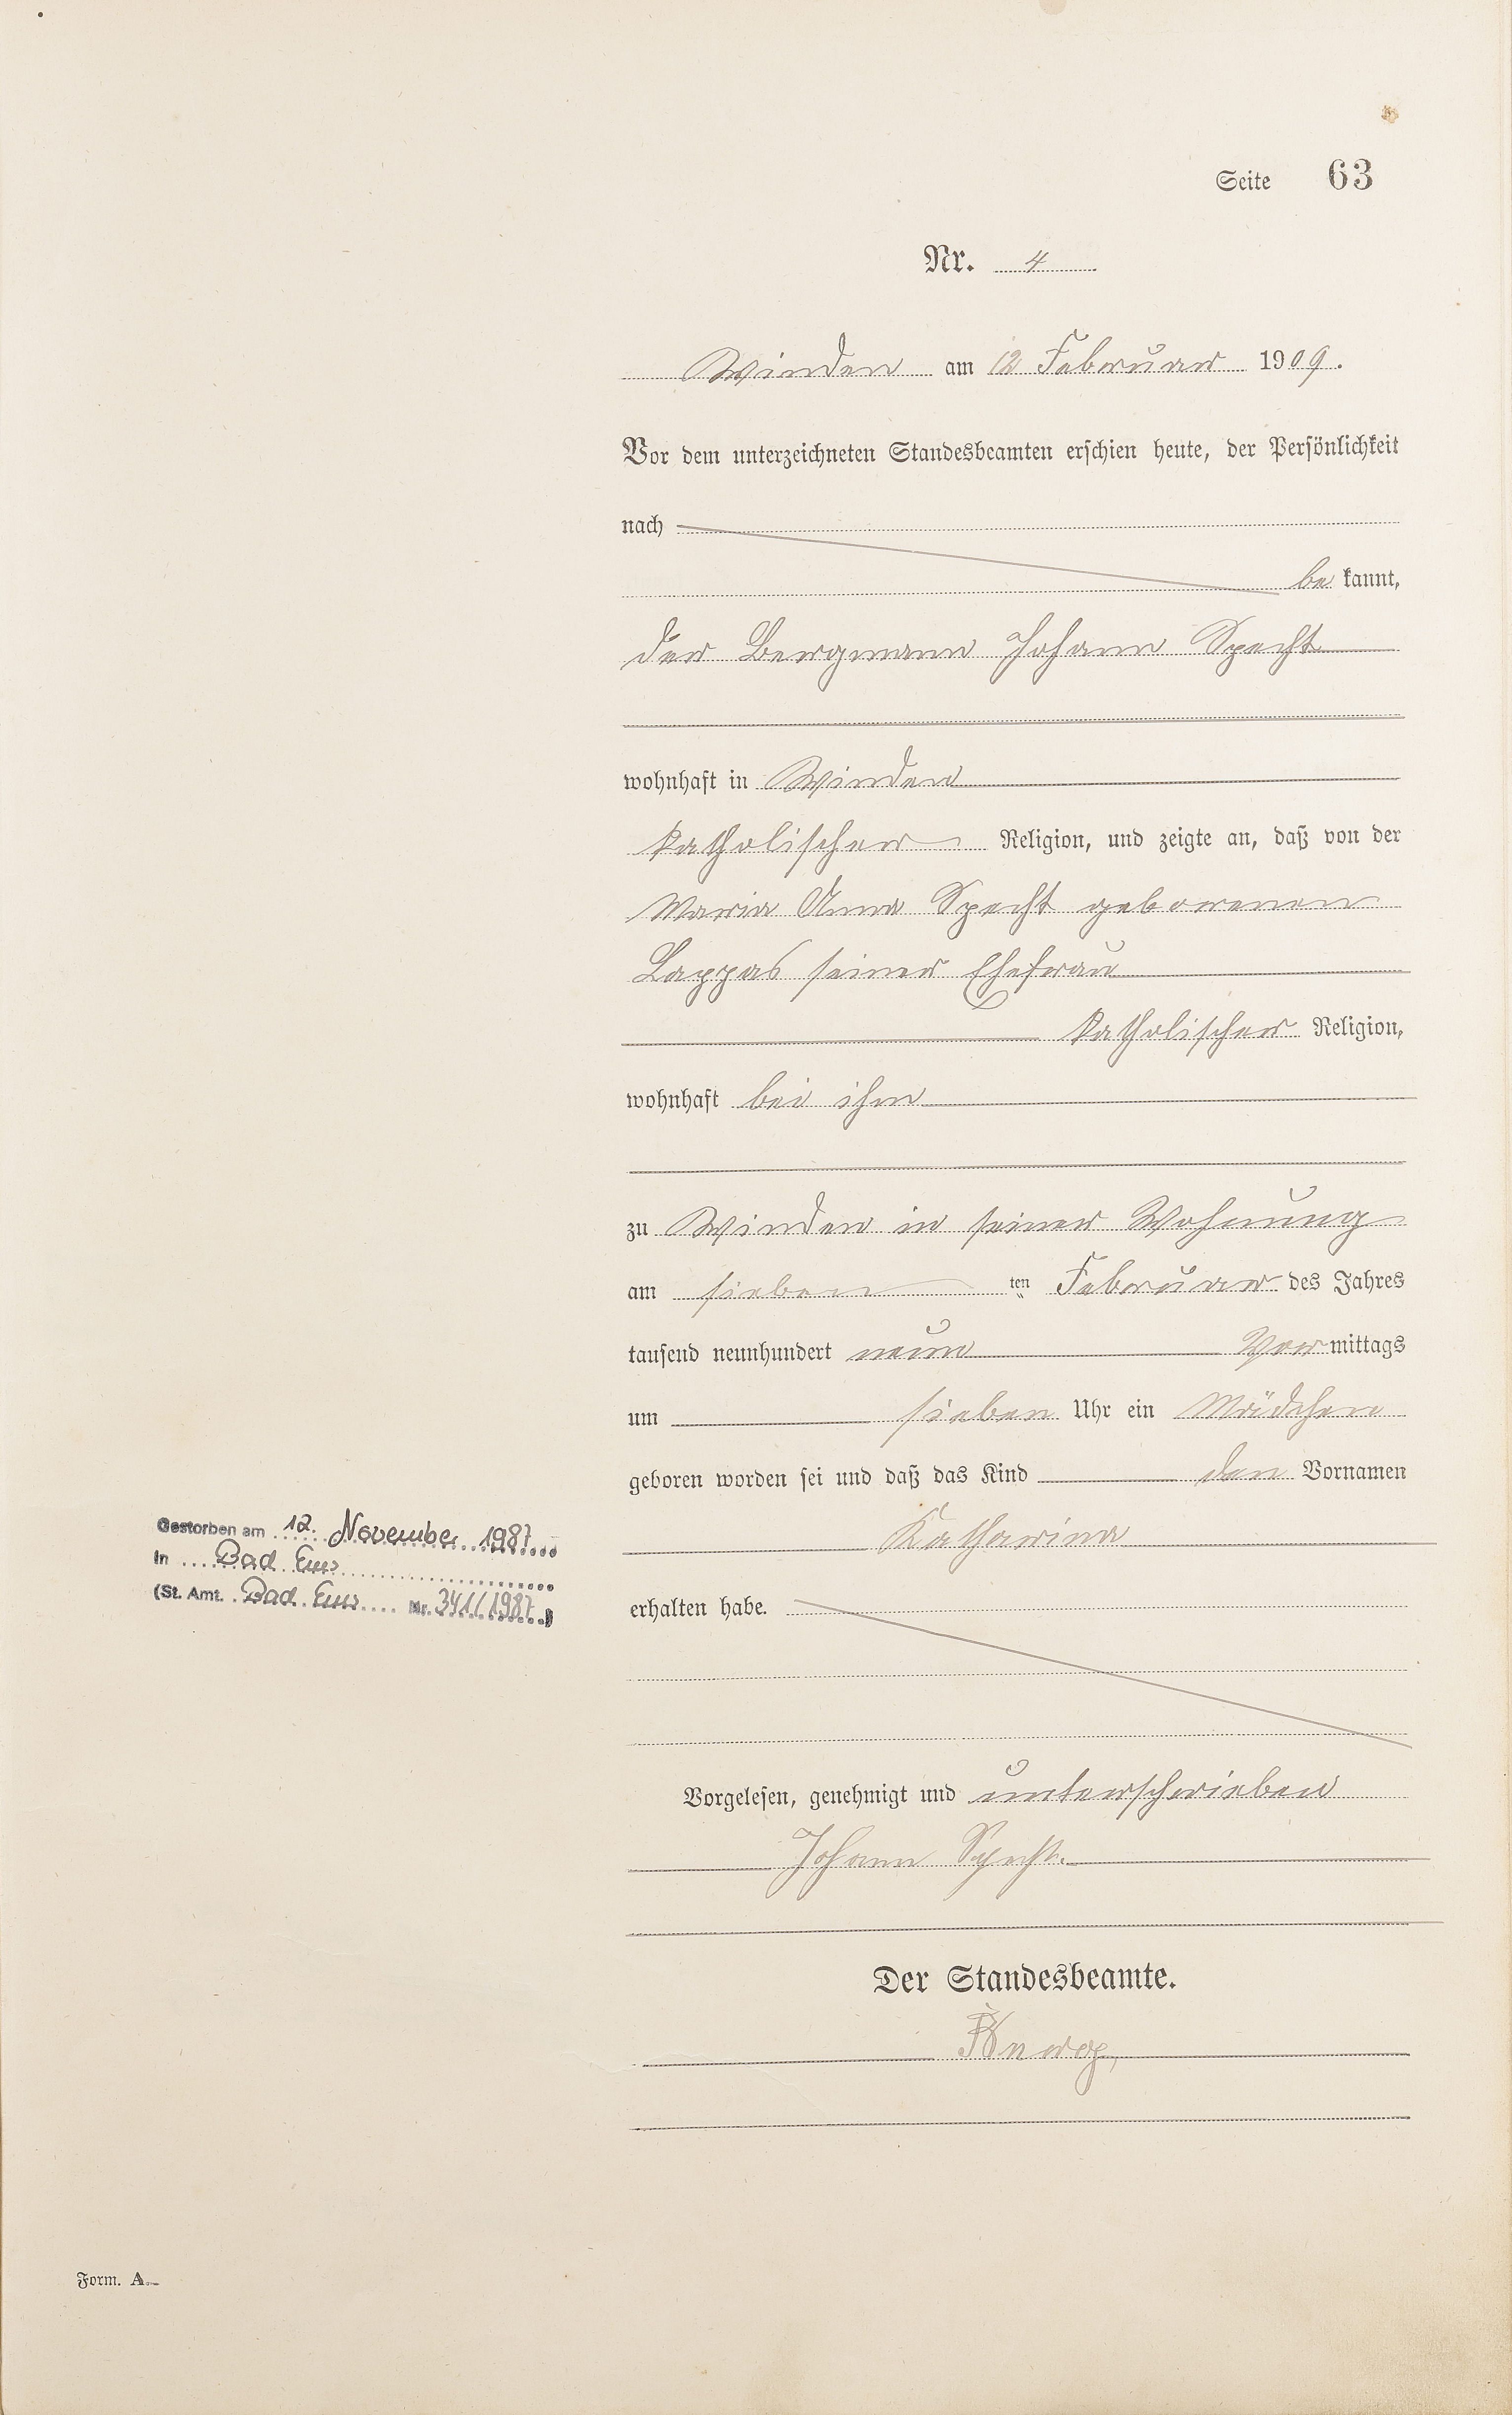 Seite 63
Nr. 4
Winden am 12 Februar 1909.
Vor dem unterzeichneten Standesbeamten erschien heute, der Persönlichkeit
nach
be kannt,
der Bergmann Johann Specht
wohnhaft in Winden
katholischer Religion, und zeigte an, daß von der
Maria Anna Specht geborenen
Lappas seiner Ehefrau
katholischer Religion,
wohnhaft bei ihm
zu Winden in seiner Wohnung
am sieben ten Februar des Jahres
tausend neunhundert neun Vor mittags
um sieben Uhr ein Mädchen
geboren worden sei und daß das Kind den Vornamen
Katharina
erhalten habe.
Gestorben am 12. November 1987
In Bad Ems
(St. Amt. Bad Ems Nr. 341/1987)
Vorgelesen, genehmigt und unterschrieben
Johann Specht.
Der Standesbeamte.
Form. A.